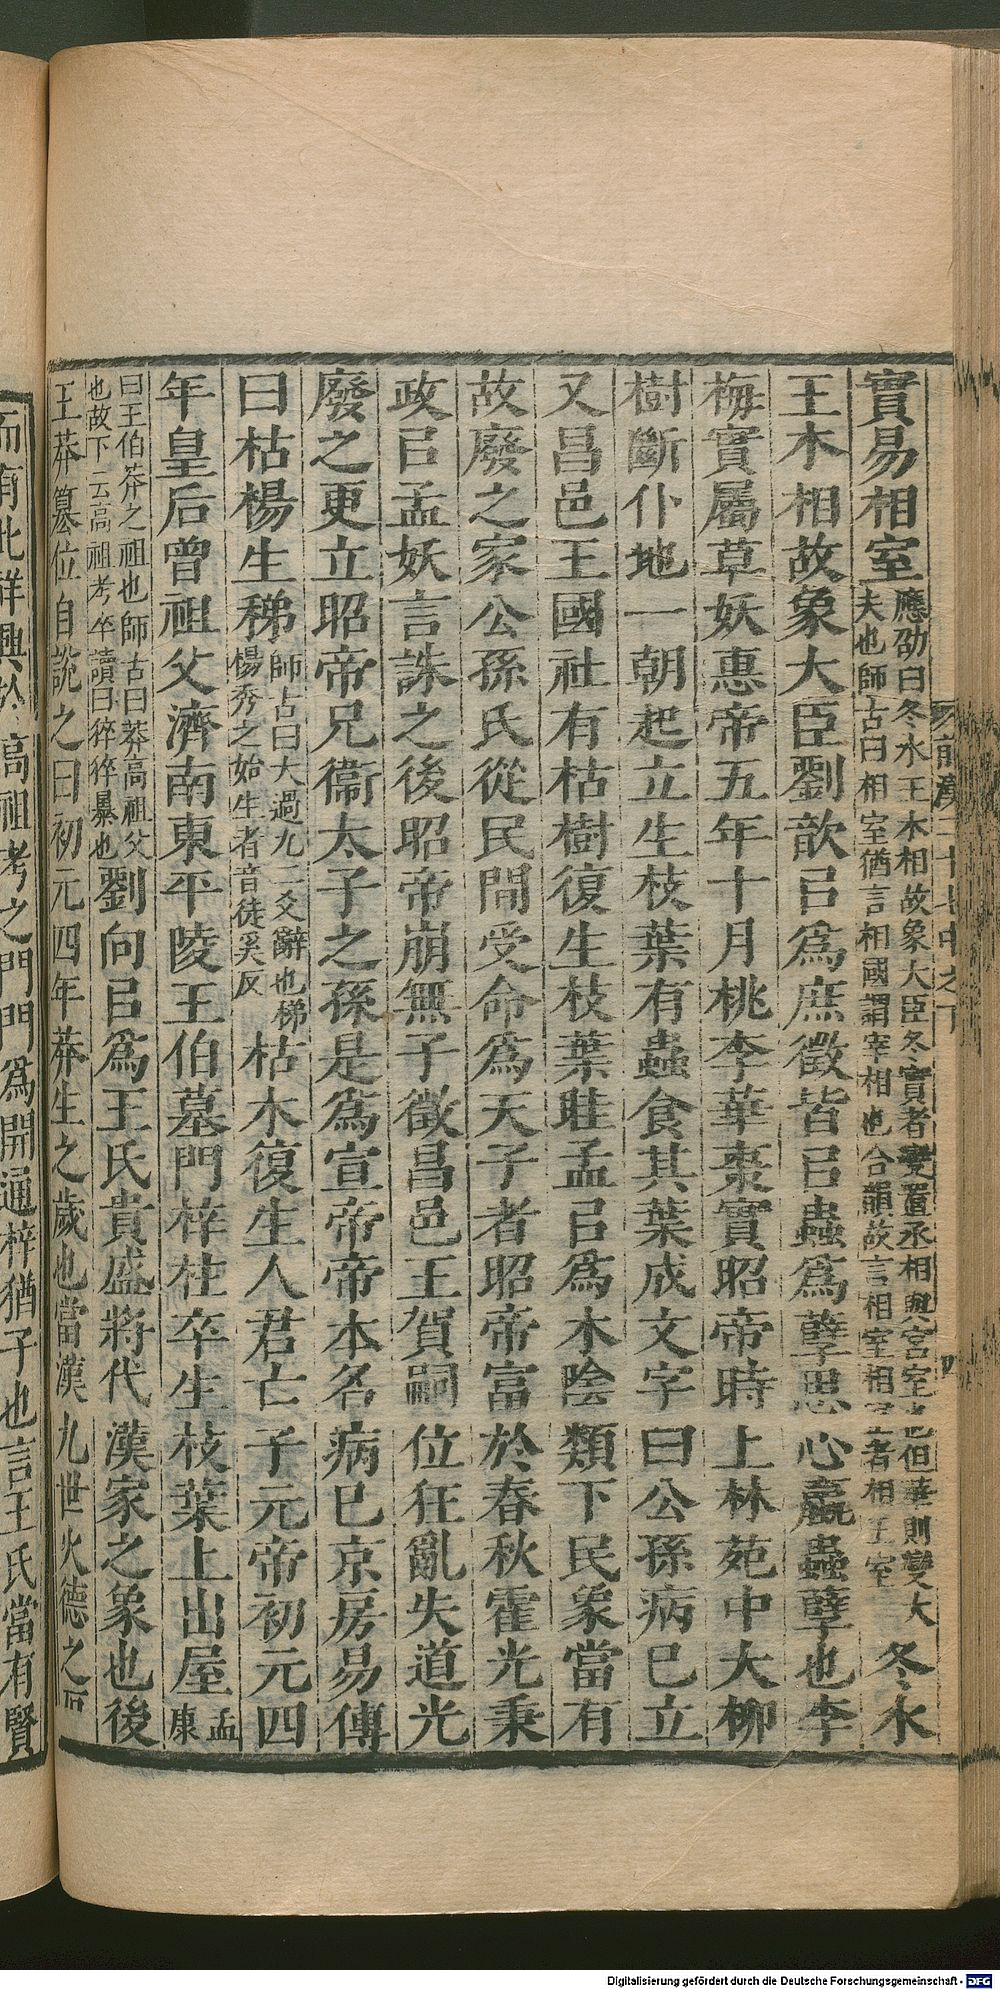 實易相室應劭曰冬水王木相故象大臣冬實者變置丞相與宮室也但華則變大夫也師古曰相室猶言相國謂宰相也合韻故言相室相室者相王室冬水
王木相故象大臣劉歆㠯爲庶徵皆㠯蟲爲孽思心蠃蟲孽也李
梅實屬草妖惠帝五年十月桃李華棗實昭帝時上林苑中大柳
樹斷仆地一朝起立生枝葉有蟲食其葉成文字曰公孫病已立
又昌邑王國社有枯樹復生枝葉眭孟㠯爲木陰類下民象當有
故廢之家公孫氏從民間受命爲天子者昭帝富於春秋霍光秉
政㠯孟妖言誅之後昭帝崩無子徵昌邑王賀嗣位狂亂失道光
廢之更立昭帝兄衞太子之孫是爲宣帝帝本名病已京房易傳
曰枯楊生稊師古曰大過九二爻辭也梯楊秀之始生者音徒奚反枯木復生人君亡子元帝初元四
年皇后曾祖父濟南東平陵王伯墓門梓柱卒生枝葉上出屋孟康
曰王伯莽之祖也師古曰莽高祖父也故下云高祖考卒讀曰猝猝暴也劉向㠯爲王氏貴盛將代漢家之象也後
王莽篡位自說之曰初元四年莽生之歲也當漢九世火德之
而有此祥興於高祖考之門門爲開通梓猶子也言王氏當有賢
前漢二十七中之下
Digitalisierung gefördert durch die Deutsche Forschungsgemeinschaft - DFG